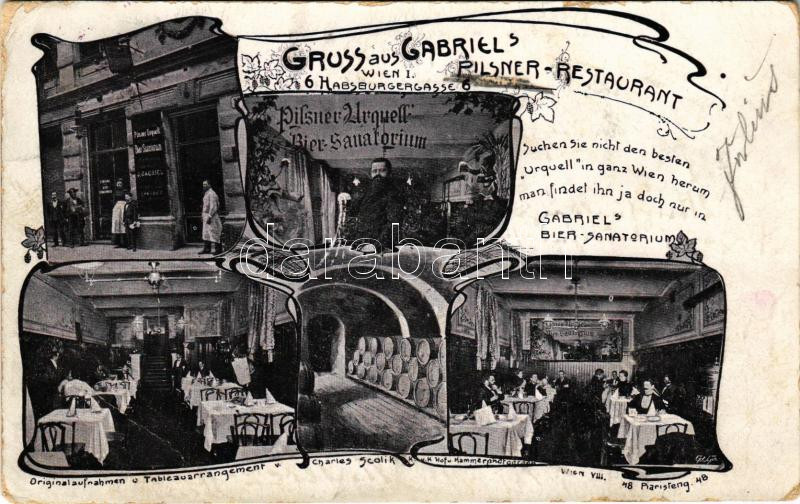 GRUSS AUS GABRIELS
PILSNER-RESTAURANT
WIEN I.
6 HABSBURGERGASSE 6
Pilsner Urquell
Bier-Sanatorium
Suchen Sie nicht den besten
"Urquell" in ganz Wien herum
man findet ihn ja doch nur in
GABRIELS
BIER-SANATORIUM
Pilsner Urquell
Bier Sanatorium
J. GABRIEL
darabanth
Pilsner Urquell
Bier-Sanatorium
Originalaufnahmen u Tableauarrangement v. Charles Scolik K. u. K Hof u Kammerphotograph Wien VIII. 48 Piaristeng. 48